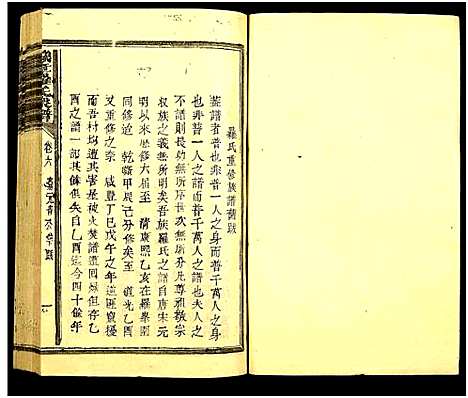 羅氏重修族譜舊跋
蓋譜者普也非普一人之身而普千萬人之身
也非普一人之譜而普千萬人之譜也夫人之
不譜則長幼無所序世次無所分凡尊祖敬宗
收族之義無所明矣吾族羅氏之譜自唐宋元
明以來歷修六屆至 清康熙乙亥在羅
同修道 乾隆甲辰己分修矣至 道光乙酉
又重修之奈 咸豐丁巳戊午之年迭匪竄擾
而吾村均遭其害是被火焚譜遭回祿但存乙
酉之譜一其餘俱失自乙酉迄今四十餘年
卷六